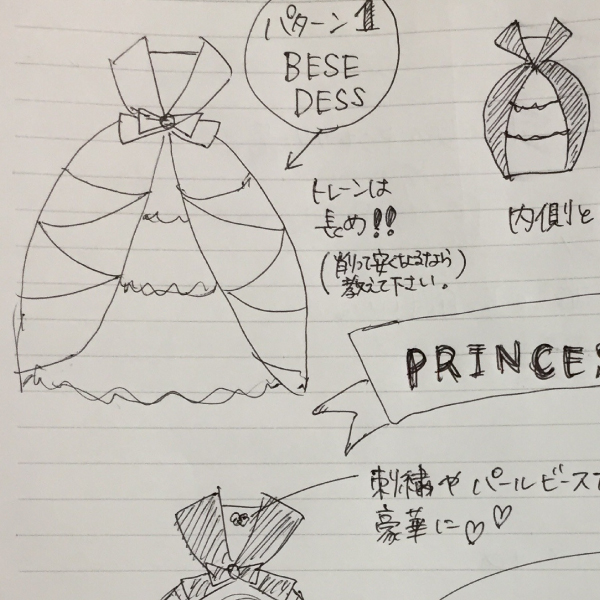 パターン1
BESE
DESS
トレーンは
長め!!
(削って安くなるなら)
教えて下さい。
内側と
PRINCES
刺繍やパールビーズで
豪華に♡♡